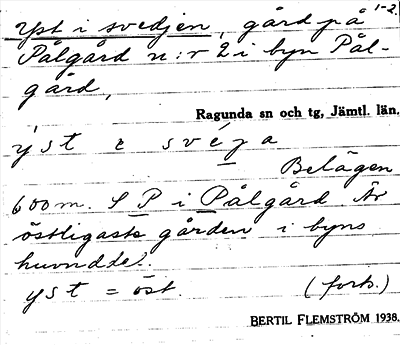 Yst i svedjen, gård på 1-2.
Pålgård n:r 2 i byn Pål-
gård,
Ragunda sn och tg, Jämtl. län.
ýst i svéja
Belägen
600 m. S P i Pålgård. Är
östligaste gården i byns
huvuddel.
yst = öst. (forts.)
BERTIL FLEMSTRÖM 1938.